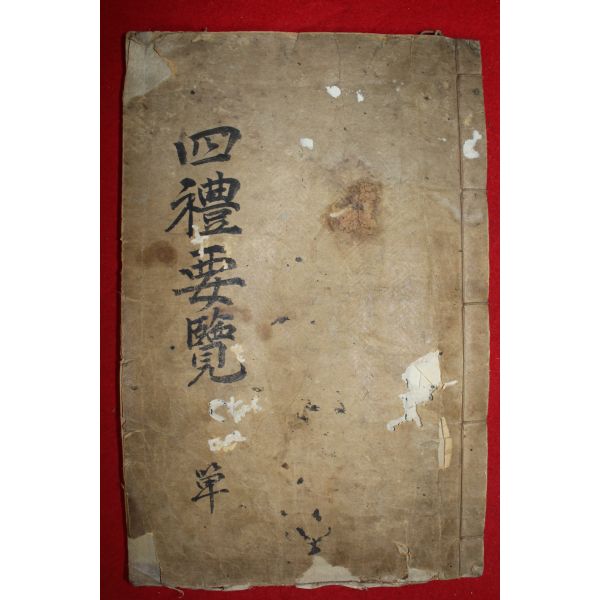 四禮要覽
單